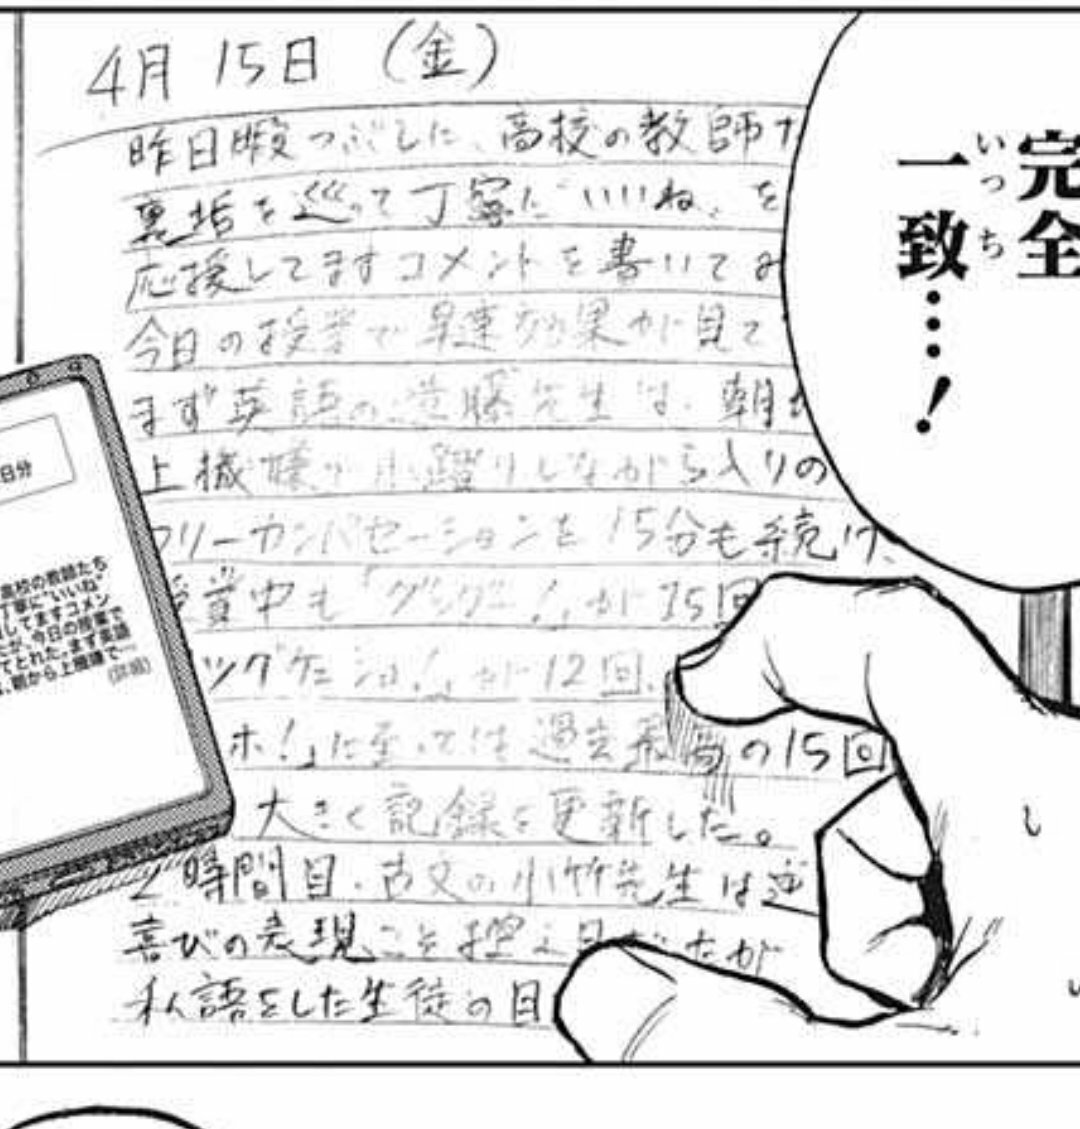 4月15日(金)
昨日暇つぶしに、高校の教師た
裏垢を巡って丁寧に"いいね"を
応援してますコメントを書いてみ
今日の授業で早速効果が見て
まず英語の遠藤先生は、朝か
上機嫌で小躍りしながら入りの
フリーカンバセーションを15分も続け、
授業中も「グッグー!」が25回
ッグケ ョ!」が12回、
ホ!」に至っては過去最高の15回
大きく記録を更新した。
2時間目、古文の小竹先生は逆
喜びの表現こそ控え目だったが
私語をした生徒の目
完全
いっち
一致……!
日分
高校の教師たち
丁寧に"いいね"
してますコメン
たが、今日の授業で
てとれた。まず英語
、朝から上機嫌で…
(詳細)